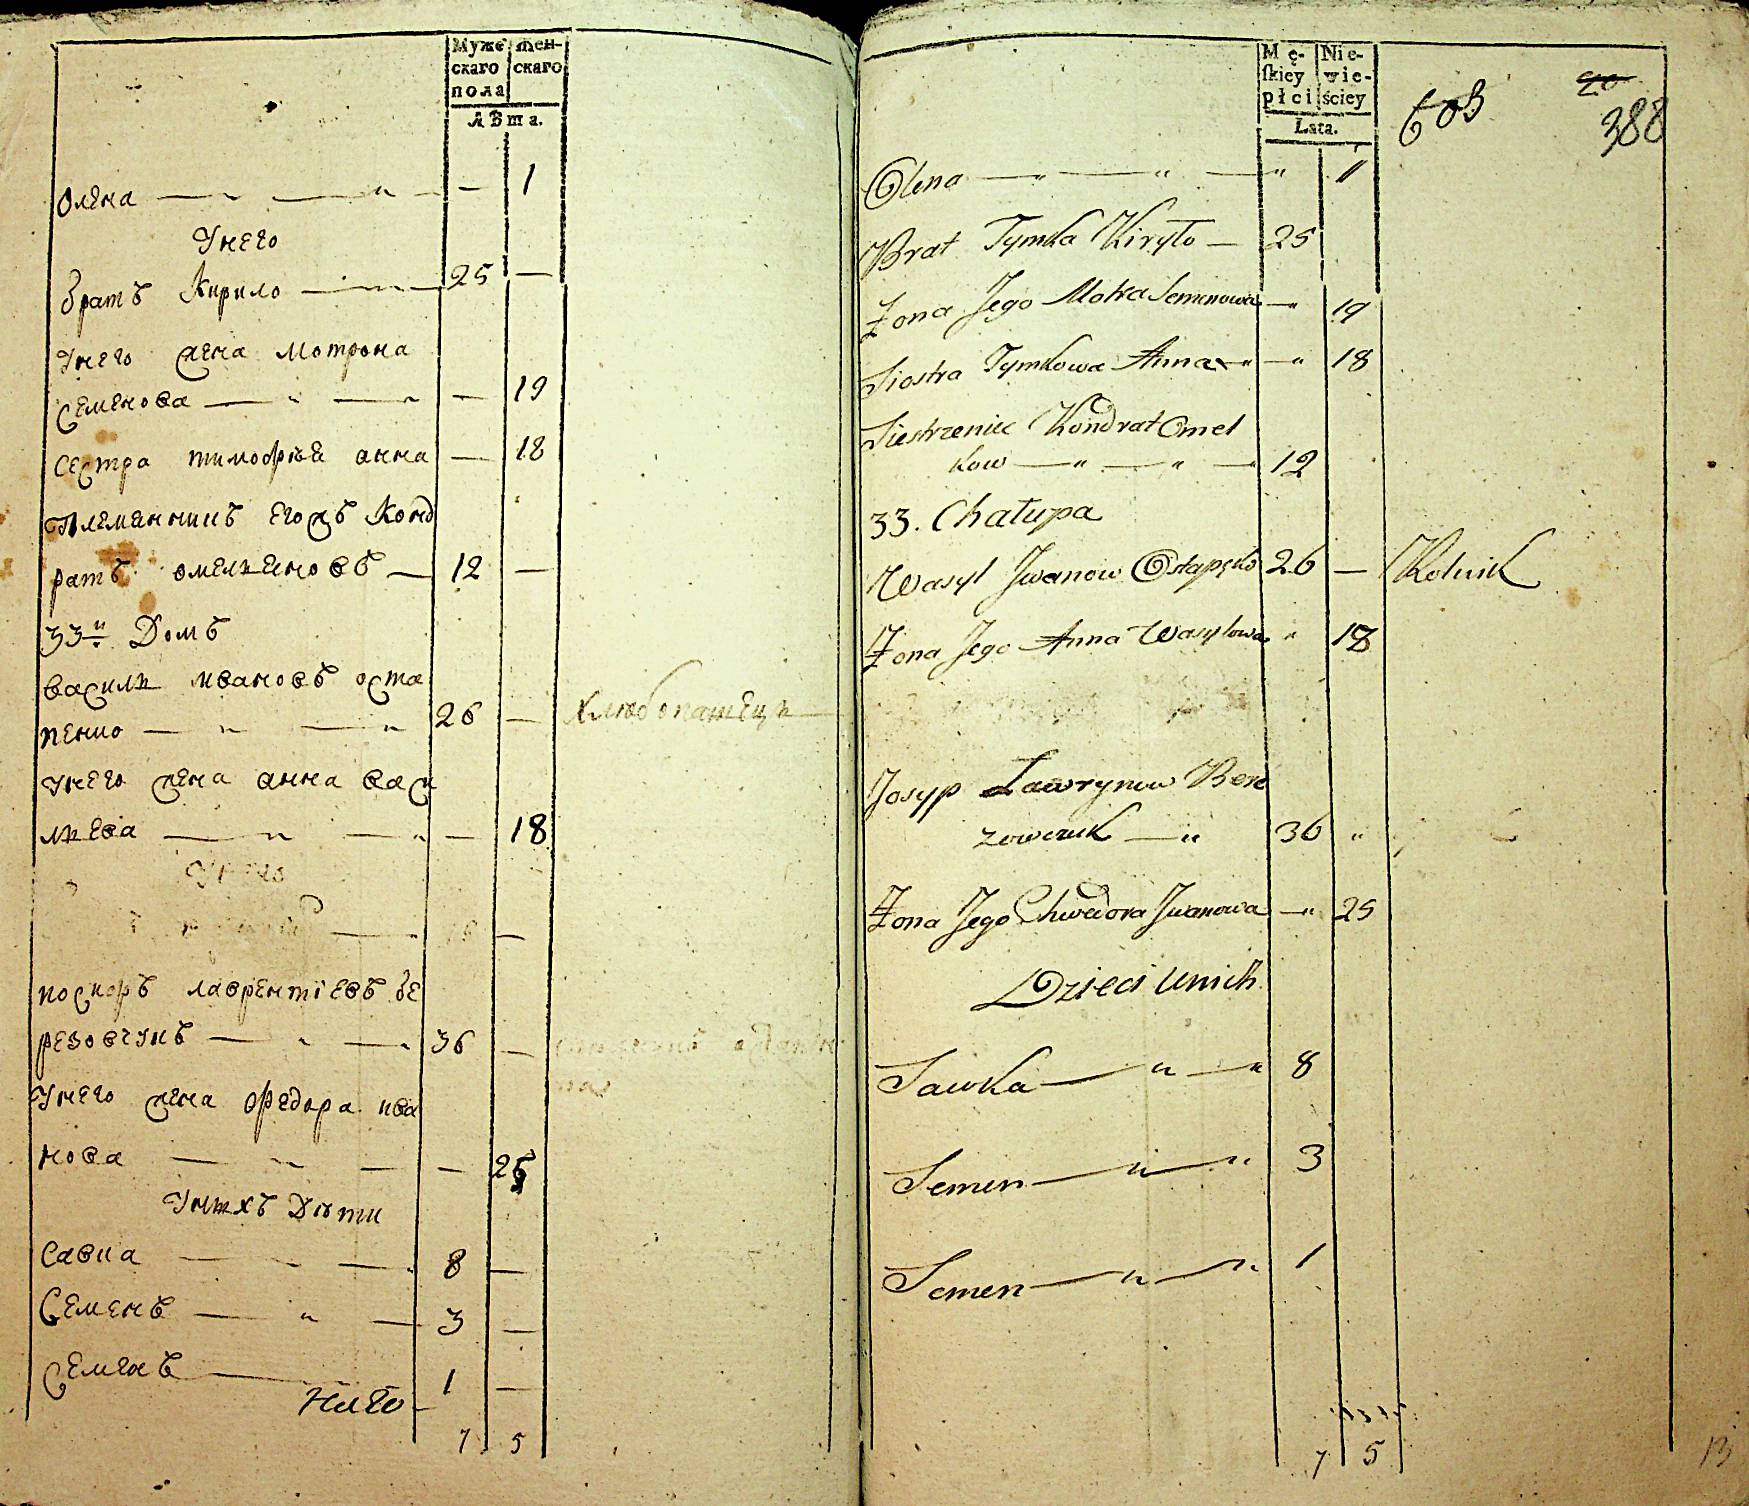 Муже
скаго
пола
Жен-
скаго
лѣта.
Олена — — — 1
У него
братъ Кирило — 25 —
У него жена Мотрона
Семенова — — — 19
Сестра Тимофѣя Анна — 18
Племянникъ егожъ Конд
ратъ Омельяновъ — 12 —
33й Домъ
Василь Ивановъ Оста
пенко — — 26 — хлѣбопашецъ
У него жена Анна Васи
льева — — — 18
У него
Іосифъ Лаврентіевъ Бе
резовчукъ — — 36 —
У него жена Федора Ива
нова — — — 25
У нихъ Дѣти
Савка — — 8 —
Семенъ — — 3 —
Семенъ — 1 —
Итого —
7 5
Mę-
skiey
płci
Nie-
wie-
ściey
Lata.
603
20
388
Olena — " — " — " 1
Brat Tymka Kiryło — 25
Żona Jego Motra Semenowa — " 19
Siostra Tymkowa Anna — " 18
Siestrzeniec Kondrat Omel
kow — " — " — 12
33. Chałupa
Wasyl Jwanow Ostapęko 26 — Rolnik
Żona Jego Anna Wasylowa " 18
Josyp Lawrynow Bere
zowczuk — " 36 "
Żona Jego Chwedora Jwanowa — " 25
Dzieci Unich
Sawka — " — " 8
Semen — " — " 3
Semen — " — " 1
7 5
13